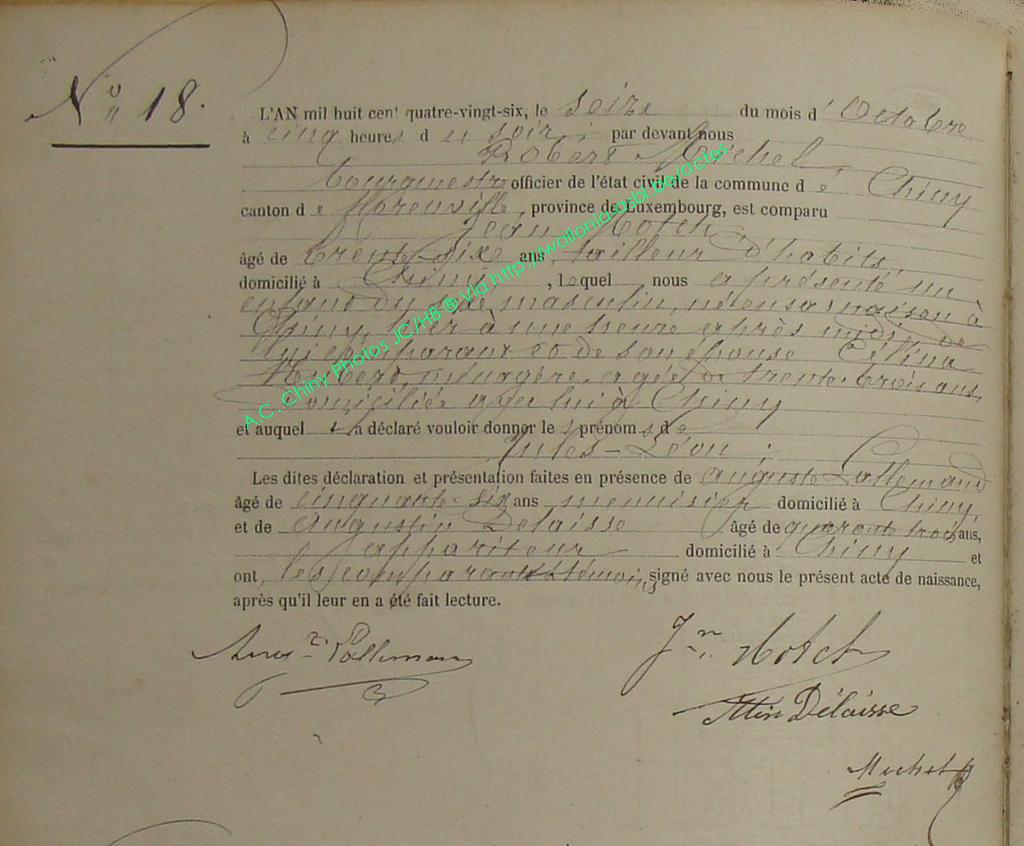 N° 18.
L'AN mil huit cent quatre-vingt-six, le seize du mois d'Octobre
à cinq heures du soir, par devant nous
Robert Michel
bourgmestre officier de l'état civil de la commune de Chiny
canton de florenville, province de Luxembourg, est comparu
Jean Hotch
âgé de trente-six ans, tailleur d'habits,
domicilié à Chiny, lequel nous a présenté un
enfant du sexe masculin, né en sa maison à
Chiny, hier à une heure après midi, de
lui comparant et de son épouse Célina
Hubert, ménagère, agée de trente-trois ans,
domiciliée avec lui à Chiny
et auquel il a déclaré vouloir donner les prénoms de
Jules-Léon;
Les dites déclaration et présentation faites en présence de Auguste Lallemand
âgé de cinquante-six ans menuisier domicilié à Chiny,
et de Augustin Delaisse âgé de quarante trois ans,
appariteur domicilié à Chiny et
ont, les comparant et témoins, signé avec nous le présent acte de naissance,
après qu'il leur en a été fait lecture.
Lallemand
Jn Hotch
Attin Délaisse
Michel R
A.C. Chiny Photos JC/HB ® via http://wallonia-asbl.be/actes